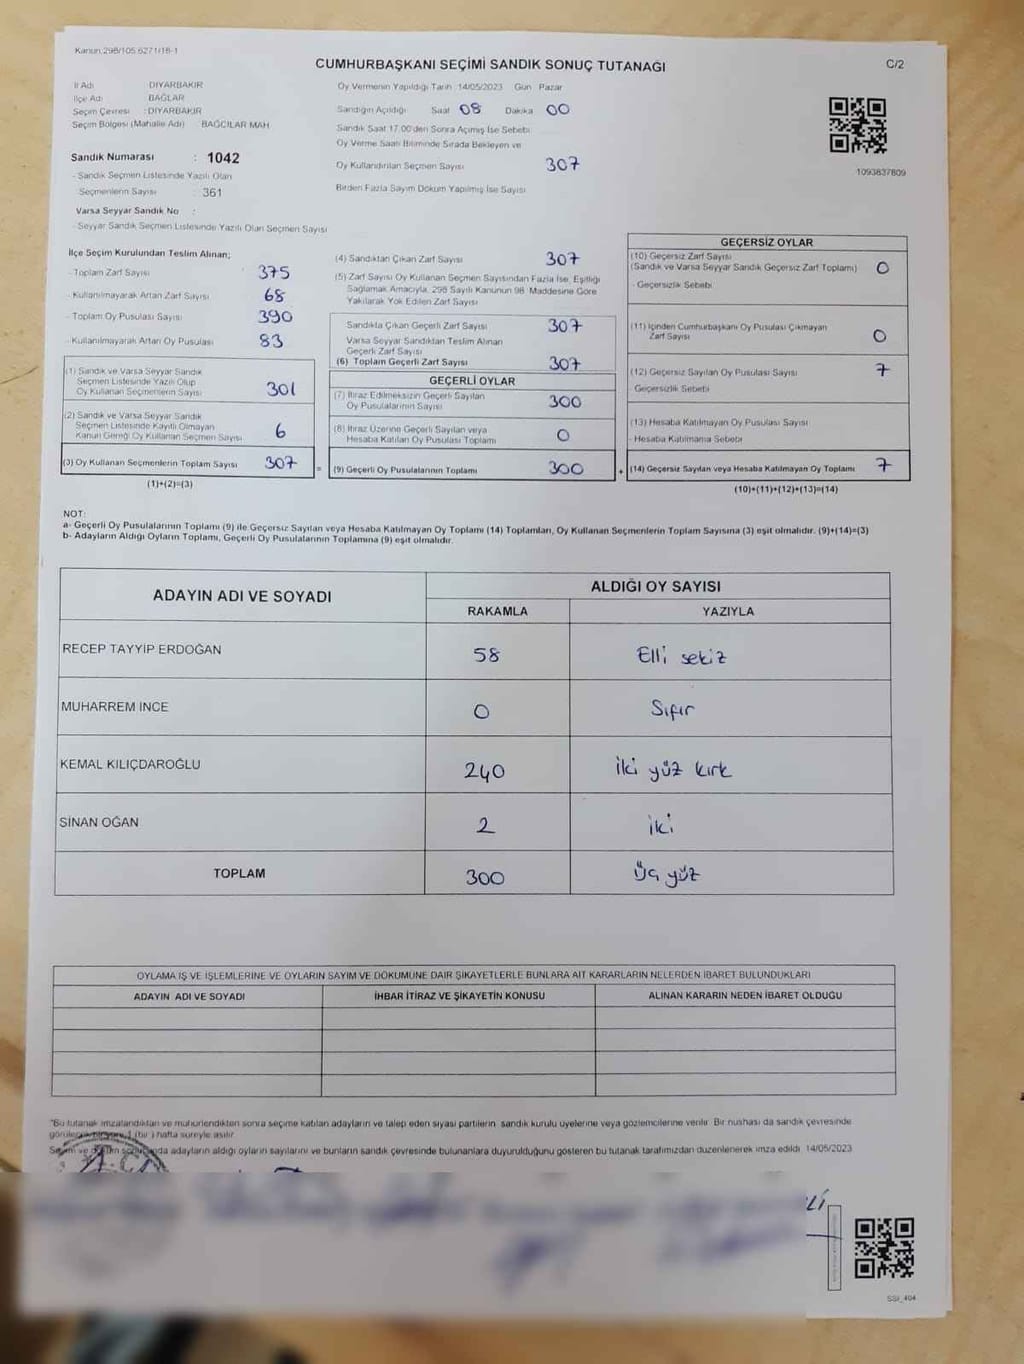 Kanun:298/105,6271/18-1
CUMHURBAŞKANI SEÇİMİ SANDIK SONUÇ TUTANAĞI
C/2
İl Adı DİYARBAKIR
İlçe Adı BAĞLAR
Seçim Çevresi : DİYARBAKIR
Seçim Bölgesi (Mahalle Adı) BAĞCILAR MAH
Sandık Numarası : 1042
- Sandık Seçmen Listesinde Yazılı Olan
Seçmenlerin Sayısı : 361
Varsa Seyyar Sandık No :
- Seyyar Sandık Seçmen Listesinde Yazılı Olan Seçmen Sayısı
Oy Vermenin Yapıldığı Tarih 14/05/2023 Gün Pazar
Sandığın Açıldığı Saat 08 Dakika 00
Sandık Saat 17.00'den Sonra Açımış İse Sebebi
Oy Verme Saati Bitiminde Sırada Bekleyen ve
Oy Kullandırılan Seçmen Sayısı 307
Birden Fazla Sayım Döküm Yapılmış İse Sayısı
1093837809
İlçe Seçim Kurulundan Teslim Alınan;
- Toplam Zarf Sayısı : 375
- Kullanılmayarak Artan Zarf Sayısı 68
- Toplam Oy Pusulası Sayısı 390
- Kullanılmayarak Artan Oy Pusulası 83
(1) Sandık ve Varsa Seyyar Sandık
Seçmen Listesinde Yazılı Olup
Oy Kullanan Seçmenlerin Sayısı 301
(2) Sandık ve Varsa Seyyar Sandık
Seçmen Listesinde Kayıtlı Olmayan
Kanun Gereği Oy Kullanan Seçmen Sayısı 6
(3) Oy Kullanan Seçmenlerin Toplam Sayısı 307
(1)+(2)=(3)
(4) Sandıktan Çıkan Zarf Sayısı 307
(5) Zarf Sayısı Oy Kullanan Seçmen Sayısından Fazla İse, Eşitliği
Sağlamak Amacıyla, 298 Sayılı Kanunun 98. Maddesine Göre
Yakılarak Yok Edilen Zarf Sayısı
Sandıkta Çıkan Geçerli Zarf Sayısı 307
Varsa Seyyar Sandıktan Teslim Alınan
Geçerli Zarf Sayısı
(6) Toplam Geçerli Zarf Sayısı 307
GEÇERLİ OYLAR
(7) İtiraz Edilmeksizin Geçerli Sayılan
Oy Pusulalarının Sayısı 300
(8) İtiraz Üzerine Geçerli Sayılan veya
Hesaba Katılan Oy Pusulası Toplamı 0
= (9) Geçerli Oy Pusulalarının Toplamı 300
GEÇERSİZ OYLAR
(10) Geçersiz Zarf Sayısı
(Sandık ve Varsa Seyyar Sandık Geçersiz Zarf Toplamı) 0
- Geçersizlik Sebebi
(11) İçinden Cumhurbaşkanı Oy Pusulası Çıkmayan
Zarf Sayısı 0
(12) Geçersiz Sayılan Oy Pusulası Sayısı 7
Geçersizlik Sebebi
(13) Hesaba Katılmayan Oy Pusulası Sayısı
- Hesaba Katılmama Sebebi
+ (14) Geçersiz Sayılan veya Hesaba Katılmayan Oy Toplamı 7
(10)+(11)+(12)+(13)=(14)
NOT:
a- Geçerli Oy Pusulalarının Toplamı (9) ile Geçersiz Sayılan veya Hesaba Katılmayan Oy Toplamı (14) Toplamları, Oy Kullanan Seçmenlerin Toplam Sayısına (3) eşit olmalıdır. (9)+(14)=(3)
b- Adayların Aldığı Oyların Toplamı, Geçerli Oy Pusulalarının Toplamına (9) eşit olmalıdır.
ADAYIN ADI VE SOYADI ALDIĞI OY SAYISI
RAKAMLA YAZIYLA
RECEP TAYYİP ERDOĞAN 58 Elli sekiz
MUHARREM İNCE 0 Sıfır
KEMAL KILIÇDAROĞLU 240 iki yüz kırk
SİNAN OĞAN 2 iki
TOPLAM 300 Üç yüz
OYLAMA İŞ VE İŞLEMLERİNE VE OYLARIN SAYIM VE DÖKÜMÜNE DAİR ŞİKAYETLERLE BUNLARA AİT KARARLARIN NELERDEN İBARET BULUNDUKLARI
ADAYIN ADI VE SOYADI İHBAR İTİRAZ VE ŞİKAYETİN KONUSU ALINAN KARARIN NEDEN İBARET OLDUĞU
*Bu tutanak imzalandıktan ve mühürlendikten sonra seçime katılan adayların ve talep eden siyasi partilerin sandık kurulu üyelerine veya gözlemcilerine verilir. Bir nüshası da sandık çevresinde
görülecek bir yere 1 (bir) hafta süreyle asılır.
Seçim ve döküm sonucunda adayların aldığı oyların sayılarını ve bunların sandık çevresinde bulunanlara duyurulduğunu gösteren bu tutanak tarafımızdan düzenlenerek imza edildi. 14/05/2023
SSI_404